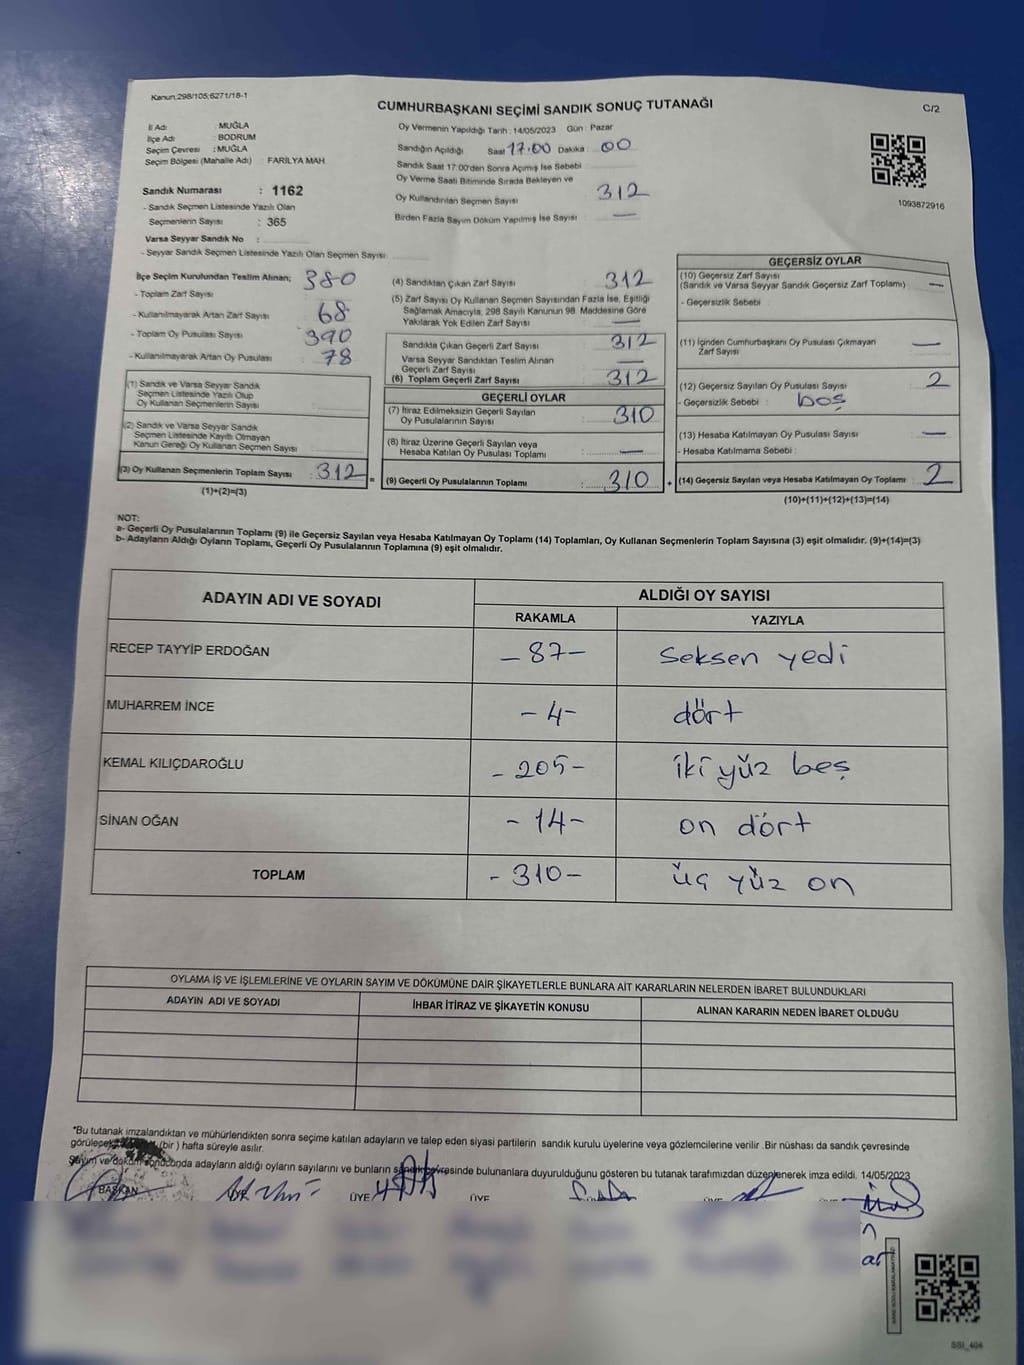 Kanun,298/105;6271/18-1
CUMHURBAŞKANI SEÇİMİ SANDIK SONUÇ TUTANAĞI
C/2
İl Adı : MUĞLA
İlçe Adı : BODRUM
Seçim Çevresi : MUĞLA
Seçim Bölgesi (Mahalle Adı) : FARİLYA MAH
Sandık Numarası : 1162
- Sandık Seçmen Listesinde Yazılı Olan
Seçmenlerin Sayısı : 365
Varsa Seyyar Sandık No :
- Seyyar Sandık Seçmen Listesinde Yazılı Olan Seçmen Sayısı:
Oy Vermenin Yapıldığı Tarih : 14/05/2023 Gün : Pazar
Sandığın Açıldığı Saat 17:00 Dakika : 00
Sandık Saat 17:00'den Sonra Açımış İse Sebebi
Oy Verme Saati Bitiminde Sırada Bekleyen ve
Oy Kullandırılan Seçmen Sayısı : 312
Birden Fazla Sayım Döküm Yapılmış İse Sayısı : —
1093872916
İlçe Seçim Kurulundan Teslim Alınan; 380
- Toplam Zarf Sayısı
- Kullanılmayarak Artan Zarf Sayısı 68
- Toplam Oy Pusulası Sayısı 390
- Kullanılmayarak Artan Oy Pusulası 78
(1) Sandık ve Varsa Seyyar Sandık
Seçmen Listesinde Yazılı Olup
Oy Kullanan Seçmenlerin Sayısı :
(2) Sandık ve Varsa Seyyar Sandık
Seçmen Listesinde Kayıtlı Olmayan
Kanun Gereği Oy Kullanan Seçmen Sayısı :
(3) Oy Kullanan Seçmenlerin Toplam Sayısı : 312
(1)+(2)=(3)
(4) Sandıktan Çıkan Zarf Sayısı : 312
(5) Zarf Sayısı Oy Kullanan Seçmen Sayısından Fazla İse, Eşitliği
Sağlamak Amacıyla, 298 Sayılı Kanunun 98. Maddesine Göre
Yakılarak Yok Edilen Zarf Sayısı : —
Sandıkta Çıkan Geçerli Zarf Sayısı : 312
Varsa Seyyar Sandıktan Teslim Alınan
Geçerli Zarf Sayısı : —
(6) Toplam Geçerli Zarf Sayısı : 312
GEÇERLİ OYLAR
(7) İtiraz Edilmeksizin Geçerli Sayılan
Oy Pusulalarının Sayısı : 310
(8) İtiraz Üzerine Geçerli Sayılan veya
Hesaba Katılan Oy Pusulası Toplamı : —
= (9) Geçerli Oy Pusulalarının Toplamı : 310
GEÇERSİZ OYLAR
(10) Geçersiz Zarf Sayısı
(Sandık ve Varsa Seyyar Sandık Geçersiz Zarf Toplamı) : —
- Geçersizlik Sebebi :
(11) İçinden Cumhurbaşkanı Oy Pusulası Çıkmayan
Zarf Sayısı : —
(12) Geçersiz Sayılan Oy Pusulası Sayısı : 2
- Geçersizlik Sebebi : boş
(13) Hesaba Katılmayan Oy Pusulası Sayısı : —
- Hesaba Katılmama Sebebi :
+ (14) Geçersiz Sayılan veya Hesaba Katılmayan Oy Toplamı : 2
(10)+(11)+(12)+(13)=(14)
NOT:
a- Geçerli Oy Pusulalarının Toplamı (9) ile Geçersiz Sayılan veya Hesaba Katılmayan Oy Toplamı (14) Toplamları, Oy Kullanan Seçmenlerin Toplam Sayısına (3) eşit olmalıdır. (9)+(14)=(3)
b- Adayların Aldığı Oyların Toplamı, Geçerli Oy Pusulalarının Toplamına (9) eşit olmalıdır.
ADAYIN ADI VE SOYADI
ALDIĞI OY SAYISI
RAKAMLA YAZIYLA
RECEP TAYYİP ERDOĞAN -87- seksen yedi
MUHARREM İNCE -4- dört
KEMAL KILIÇDAROĞLU -205- iki yüz beş
SİNAN OĞAN -14- on dört
TOPLAM -310- üç yüz on
OYLAMA İŞ VE İŞLEMLERİNE VE OYLARIN SAYIM VE DÖKÜMÜNE DAİR ŞİKAYETLERLE BUNLARA AİT KARARLARIN NELERDEN İBARET BULUNDUKLARI
ADAYIN ADI VE SOYADI İHBAR İTİRAZ VE ŞİKAYETİN KONUSU ALINAN KARARIN NEDEN İBARET OLDUĞU
*Bu tutanak imzalandıktan ve mühürlendikten sonra seçime katılan adayların ve talep eden siyasi partilerin sandık kurulu üyelerine veya gözlemcilerine verilir .Bir nüshası da sandık çevresinde
(bir ) hafta süreyle asılır.
Sayım ve döküm sonucunda adayların aldığı oyların sayılarını ve bunların sandık çevresinde bulunanlara duyurulduğunu gösteren bu tutanak tarafımızdan düzenlenerek imza edildi. 14/05/2023
BAŞKAN ÜYE ÜYE ÜYE
SSİ_404